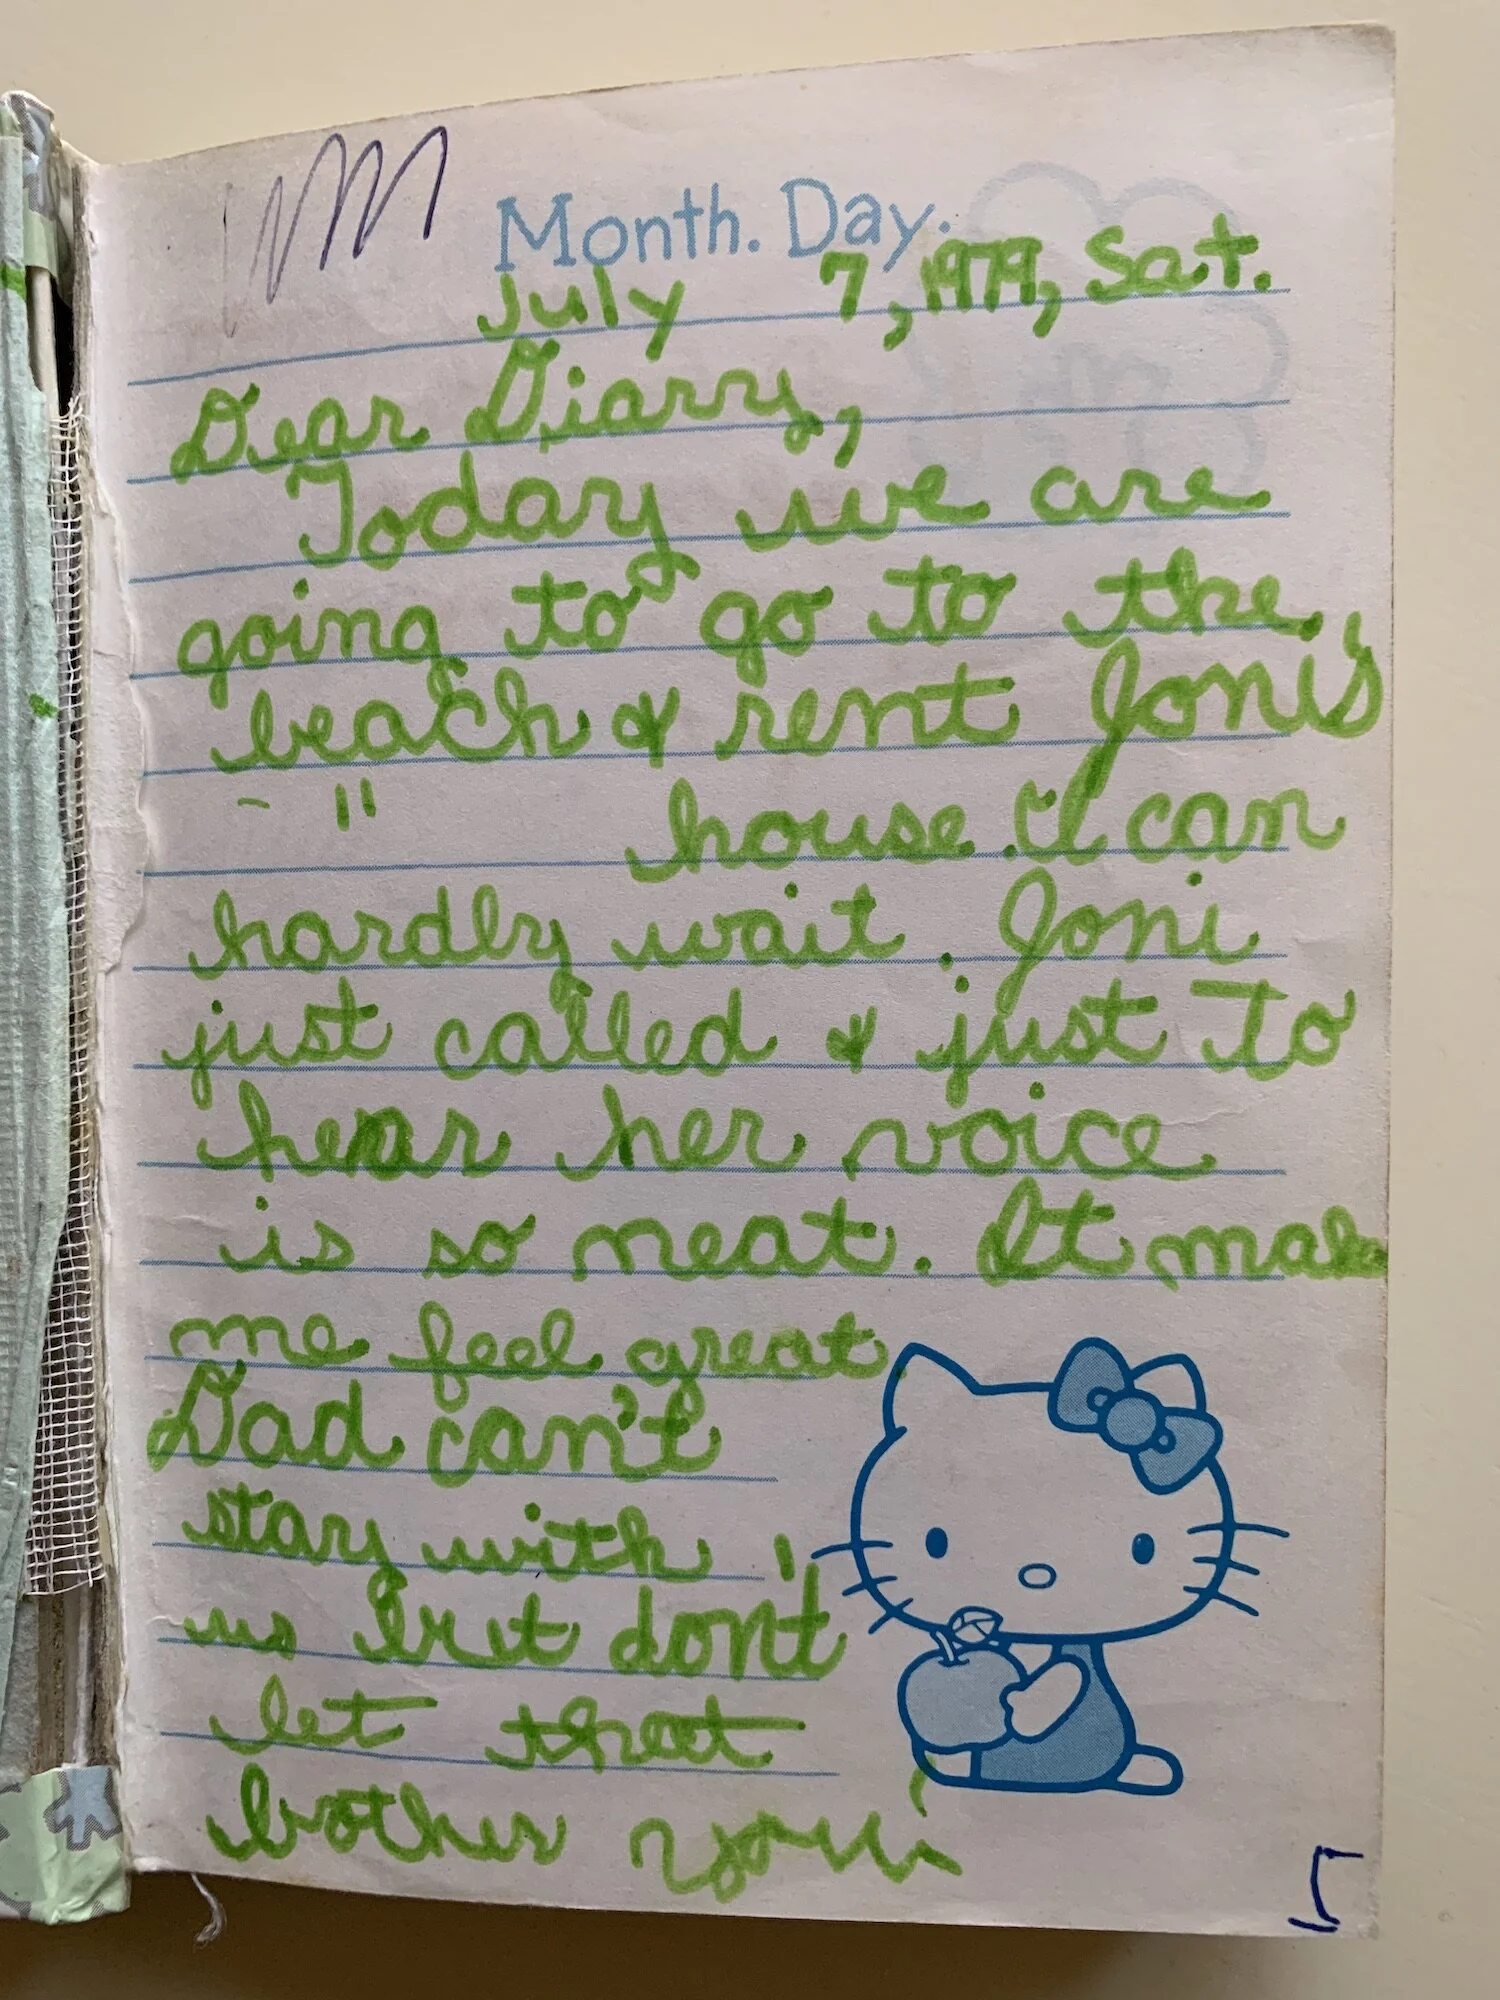 Month. Day.
July 7, 1979, Sat.
Dear Diary,
Today we are
going to go to the
beach & rent Joni's
" house. I can
hardly wait. Joni
just called & just to
hear her voice
is so neat. It make
me feel great.
Dad can't
stay with
us but don't
let that
bother you!
5